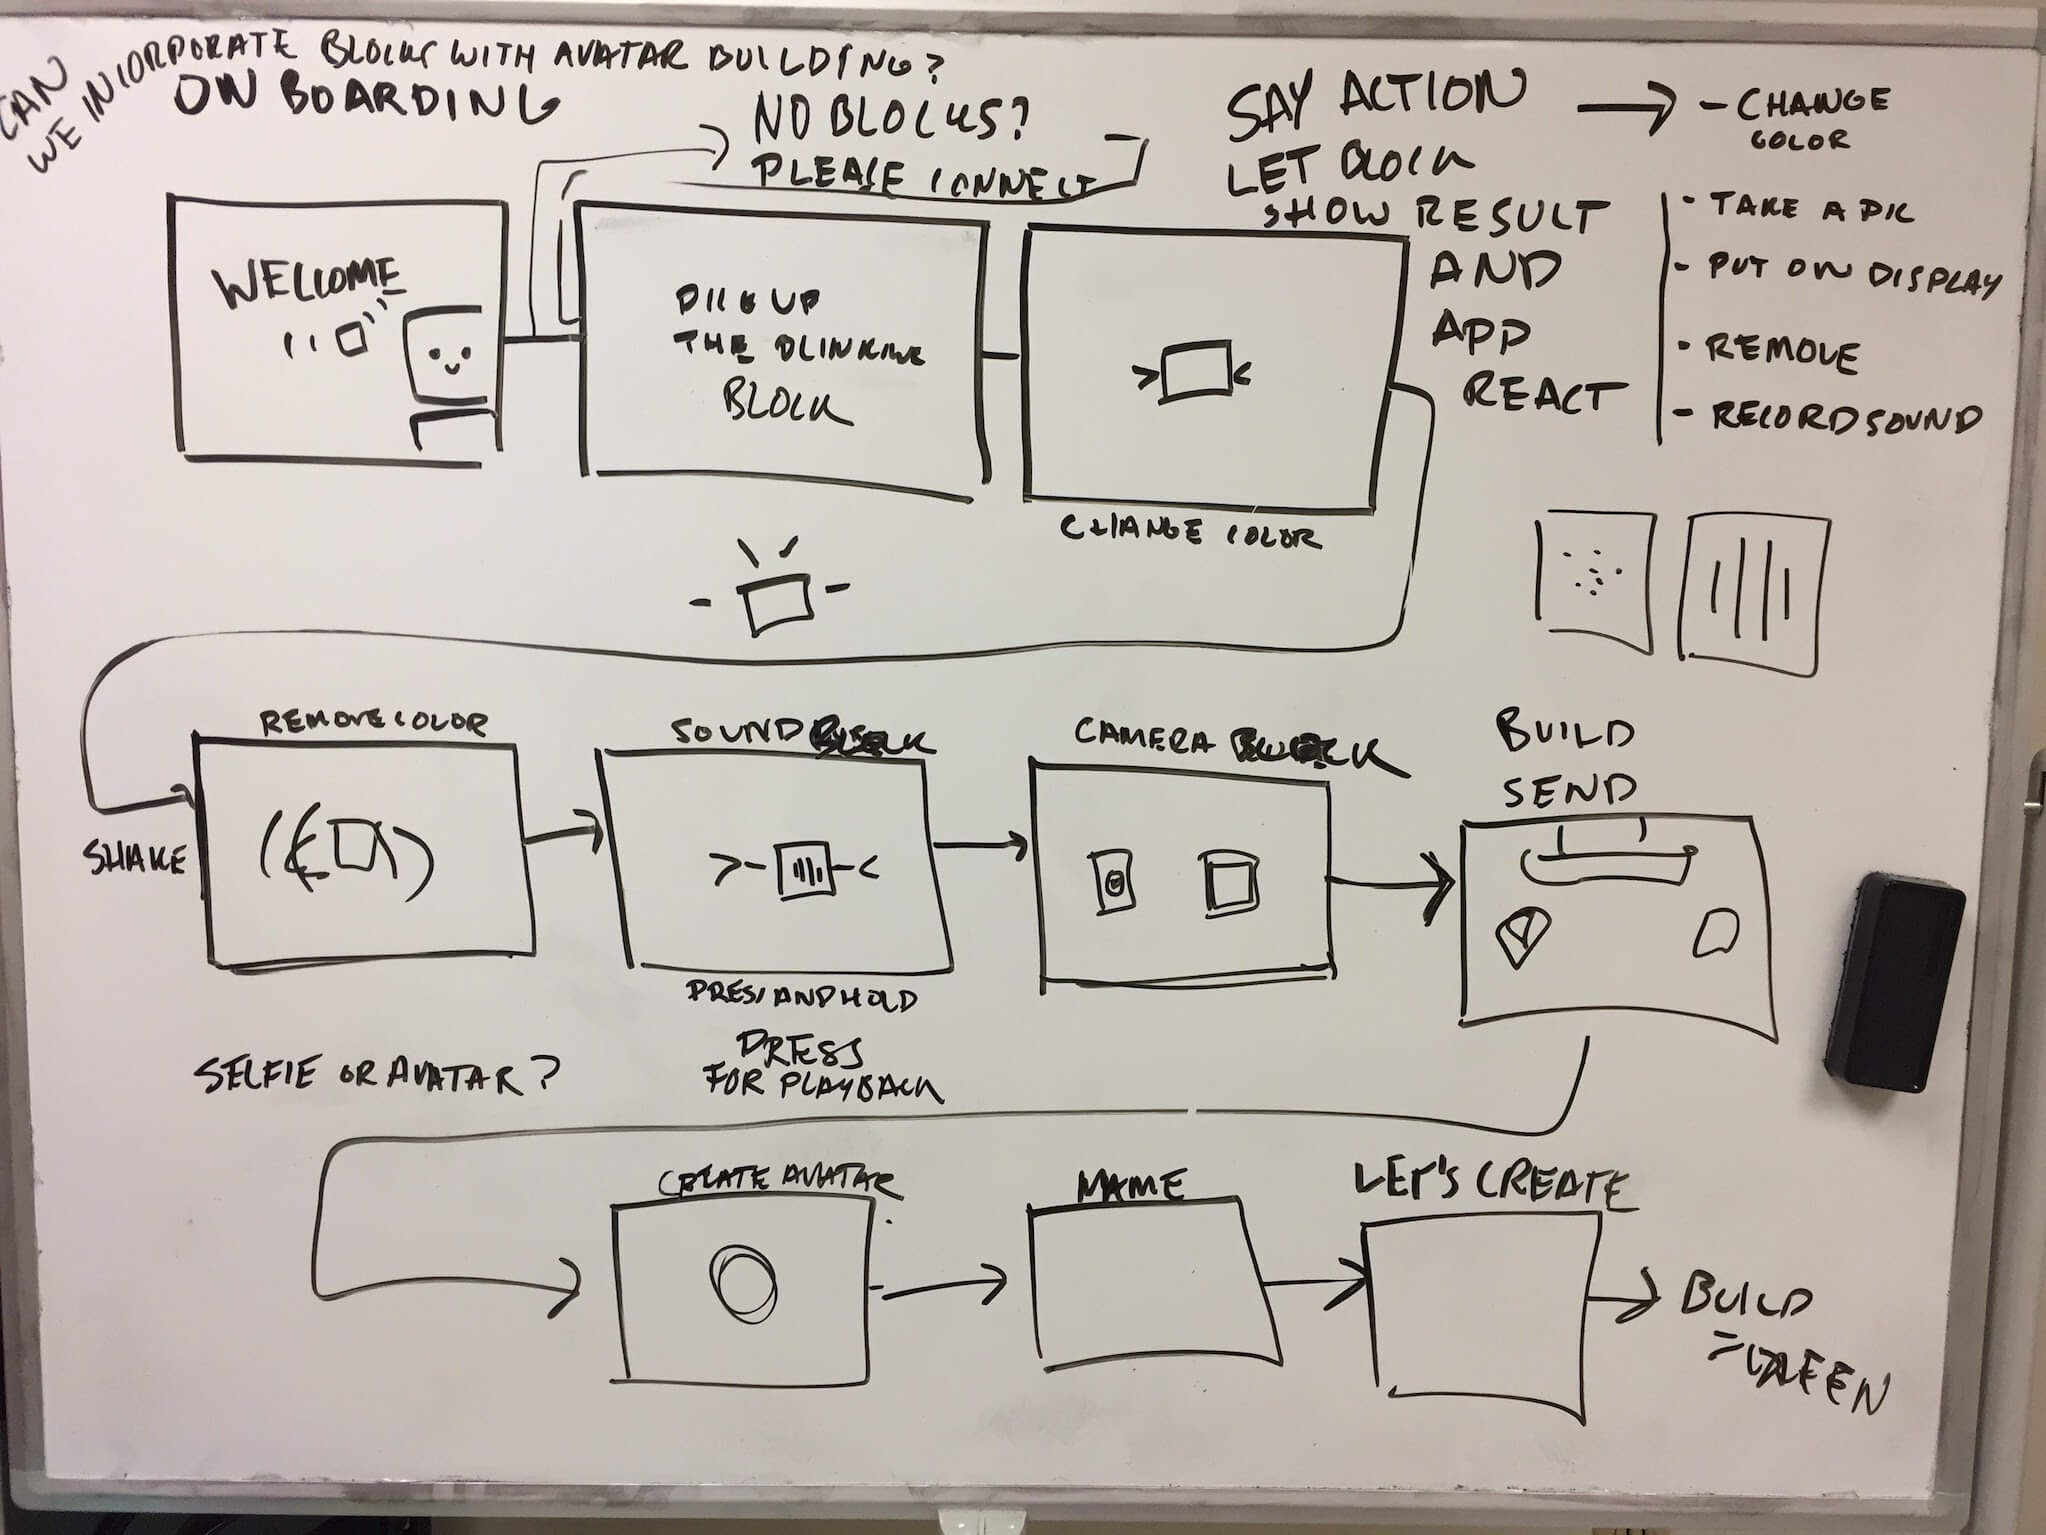 CAN
WE INCORPORATE BLOCKS WITH AVATAR BUILDING?
ON BOARDING
NO BLOCKS?
PLEASE CONNECT
SAY ACTION
LET BLOCK
SHOW RESULT
AND
APP
REACT
- CHANGE
COLOR
- TAKE A PIC
- PUT ON DISPLAY
- REMOVE
- RECORD SOUND
WELCOME
PICK UP
THE BLINKING
BLOCK
CHANGE COLOR
REMOVE COLOR
SHAKE
SOUND BLOCK
PRESS AND HOLD
PRESS
FOR PLAYBACK
CAMERA BLOCK
BUILD
SEND
SELFIE OR AVATAR?
CREATE AVATAR
NAME
LET'S CREATE
BUILD
SCREEN